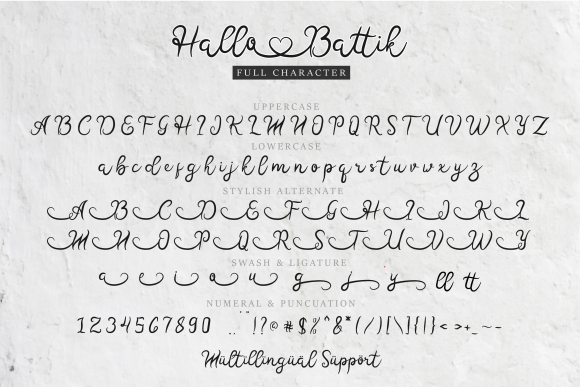 Hallo Battik
FULL CHARACTER
UPPERCASE
A B C D E F G H I J K L M N O P Q R S T U V W X Y Z
LOWERCASE
a b c d e f g h i j k l m n o p q r s t u v w x y z
STYLISH ALTERNATE
A B C D E F G H I J K L
M N O P Q R S T U V W Y
SWASH & LIGATURE
a e i o u g j y ll tt
NUMERAL & PUNCUATION
1 2 3 4 5 6 7 8 9 0 .. : " " ! ? © # $ % ^ & * ( / ) [ \ ] { | } < > + _ ~ -
Mültillingüäl Süppört